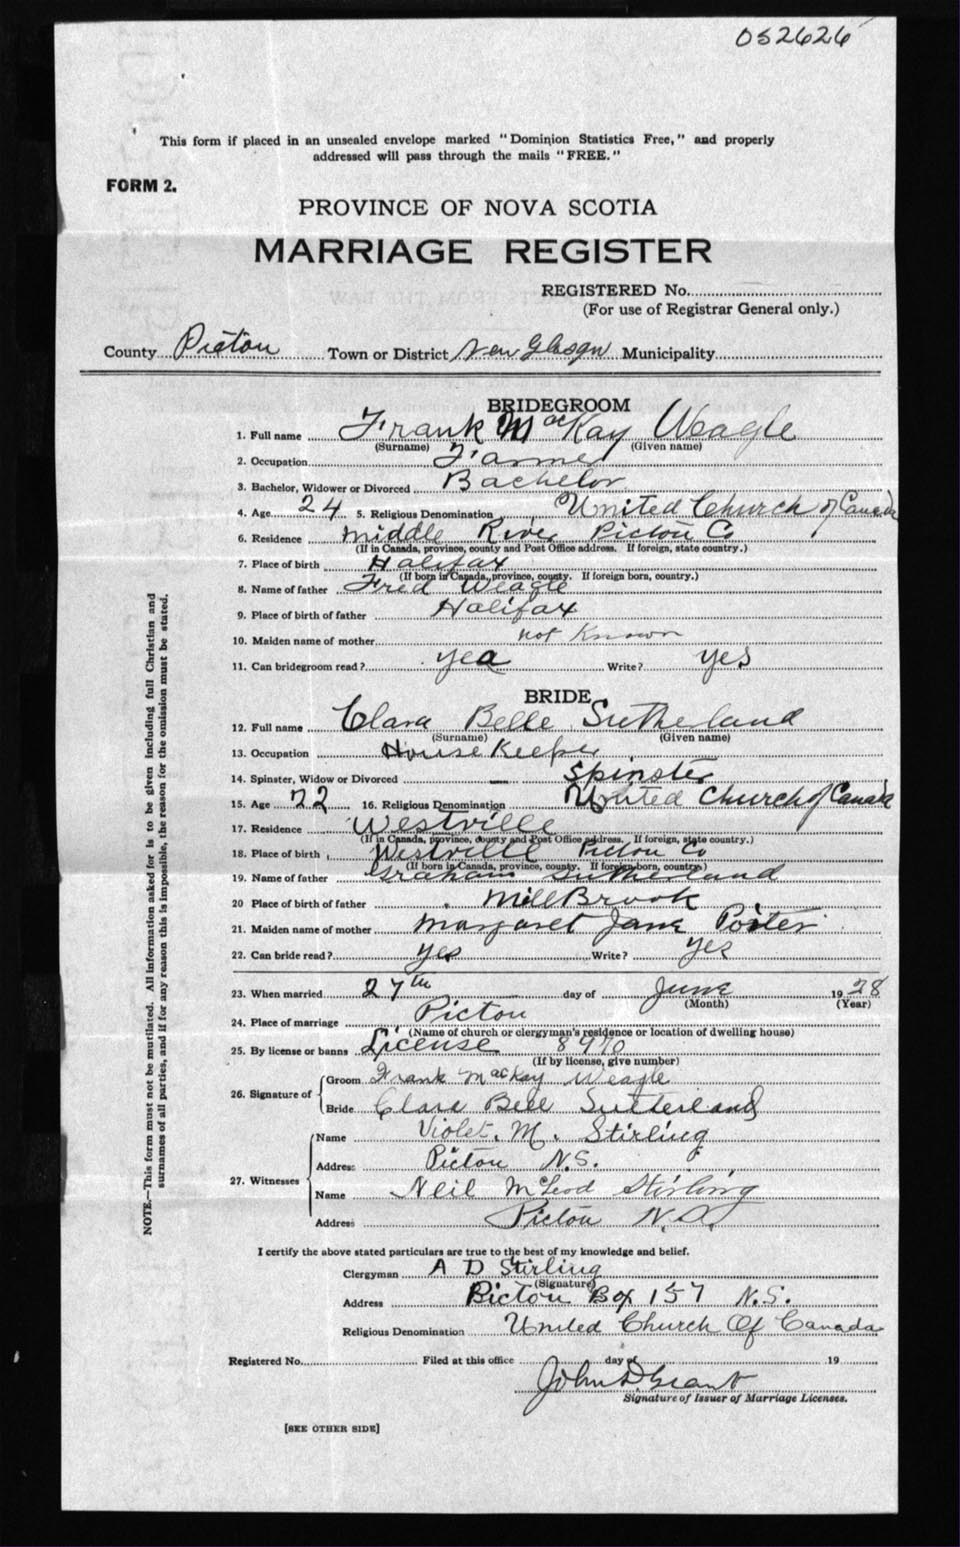 052626
This form if placed in an unsealed envelope marked "Dominion Statistics Free," and properly
addressed will pass through the mails "FREE."
FORM 2.
PROVINCE OF NOVA SCOTIA
MARRIAGE REGISTER
REGISTERED No.
(For use of Registrar General only.)
County Pictou Town or District New Glasgow Municipality
BRIDEGROOM
1. Full name Frank MacKay Weagle
(Surname) (Given name)
2. Occupation Farmer
3. Bachelor, Widower or Divorced Bachelor
4. Age 24 5. Religious Denomination United Church of Canada
6. Residence Middle River Pictou Co
(If in Canada, province, county and Post Office address. If foreign, state country.)
7. Place of birth Halifax
(If born in Canada, province, county. If foreign born, country.)
8. Name of father Fred Weagle
9. Place of birth of father Halifax
10. Maiden name of mother not Known
11. Can bridegroom read? yea Write? yes
BRIDE
12. Full name Clara Belle Sutherland
(Surname) (Given name)
13. Occupation House Keeper
14. Spinster, Widow or Divorced Spinster
15. Age 22 16. Religious Denomination United Church of Canada
17. Residence Westville
(If in Canada, province, county and Post Office address. If foreign, state country.)
18. Place of birth Westville Pictou Co
(If born in Canada, province, county. If foreign born, country.)
19. Name of father Graham Sutherland
20 Place of birth of father Mill Brook
21. Maiden name of mother Margaret Jane Porter
22. Can bride read? yes Write? yes
23. When married 27th day of June 1928
(Month) (Year)
24. Place of marriage Pictou
(Name of church or clergyman's residence or location of dwelling house)
25. By license or banns License 8970
(If by license, give number)
26. Signature of Groom Frank MacKay Weagle
Bride Clara Bell Sutterland
27. Witnesses Name Violet. M. Stirling
Address Pictou N.S.
Name Neil McLeod Stirling
Address Pictou N.S.
I certify the above stated particulars are true to the best of my knowledge and belief.
Clergyman A D Stirling
(Signature)
Address Pictou Box 157 N.S.
Religious Denomination United Church Of Canada
Registered No. Filed at this office day of 19
John D Grant
Signature of Issuer of Marriage Licenses.
[SEE OTHER SIDE]
NOTE.—This form must not be mutilated. All information asked for is to be given including full Christian and
surnames of all parties, and if for any reason this is impossible, the reason for the omission must be stated.